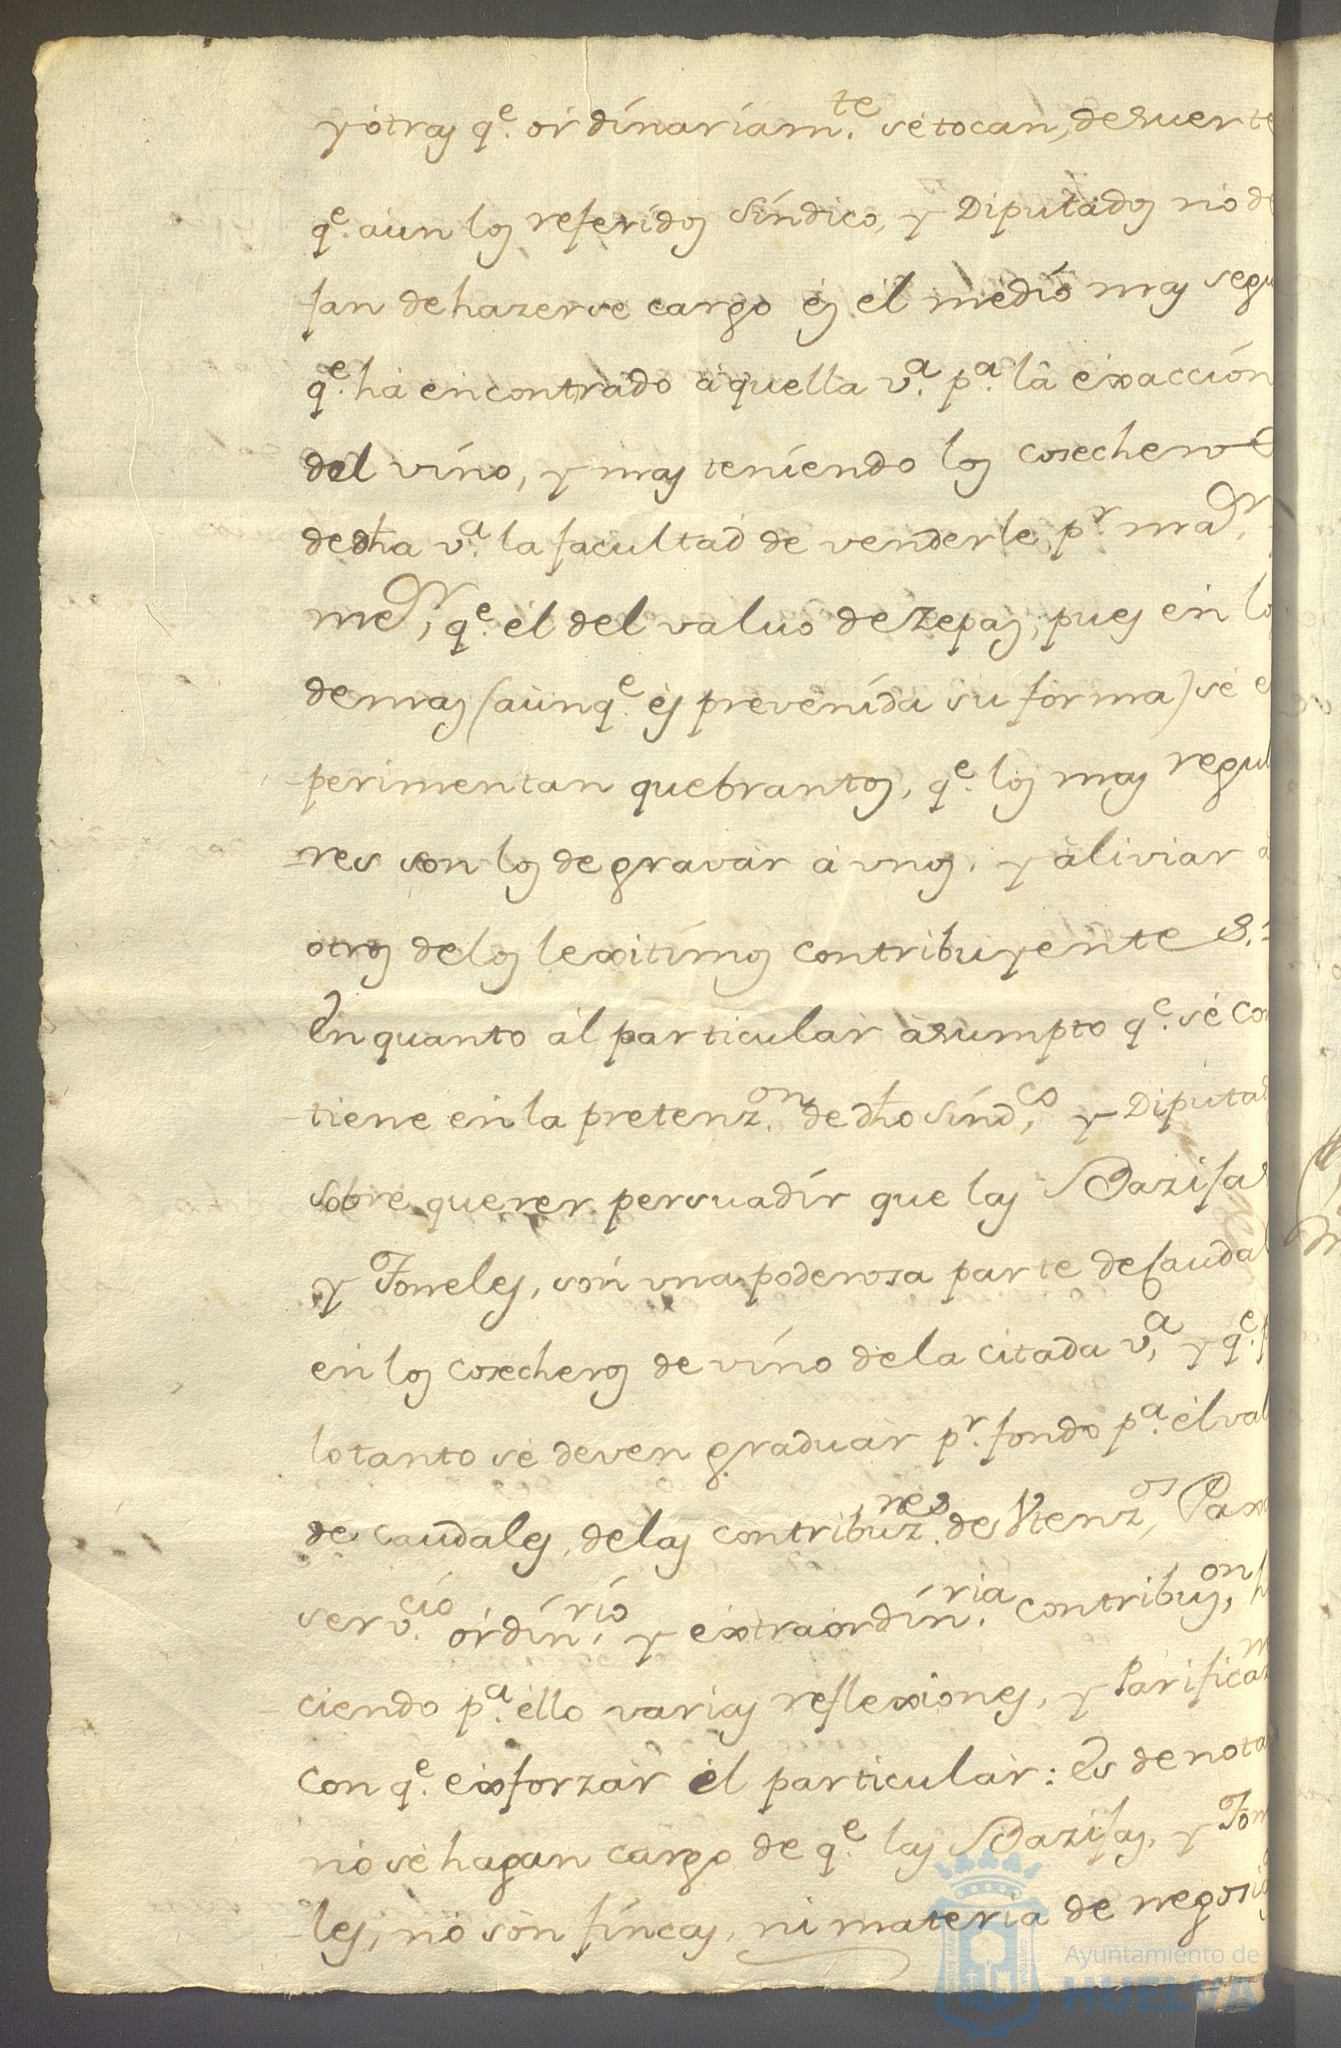 y otras q.e ordinariam.te se tocan, de suerte
q.e aun los referidos Síndico, y Diputados no de
jan de hazerse cargo es el medio mas segu
q.e ha encontrado aquella v.a p.a la exacción
del vino, y mas teniendo los cosecheros
de dha v.a la facultad de venderle p.r
q.e el del valuo de Zepas, pues en lo
demas (aunq.e es prevenida su forma) se e
perimentan quebrantos, q.e los mas regul
res son los de gravar a unos, y aliviar a
otros de los lexitimos contribuyentes.=
En quanto al particular asumpto q.e se con
tiene en la pretenz.on de dho Sínd.co y Diputad
sobre querer persuadir que las Bazijas
y Toneles, son una poderosa parte de Caudal
en los cosecheros de vino de la citada v.a y q.e p
lo tanto se deven graduar p.r fondo p.a el val
de caudales, de las contribuz.nes de Vtenz.os
serv.cio ordin.rio y extraordin.ria contribuz.on h
ciendo p.a ello varias reflexiones, y Parifica
con q.e exforzar el particular: Es de nota
no se hagan cargo de q.e las Bazijas, y Ton
les, no son fincas, ni materia de negozi
Ayuntamiento de
HUELVA